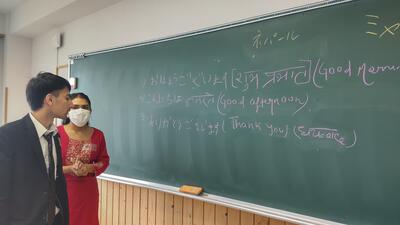 ネパール
おはようございます [शुभ प्रभात] (Good
नमस्ते (Good afternoon)
ありがとうございます ( Thank you) (धन्यवाद)